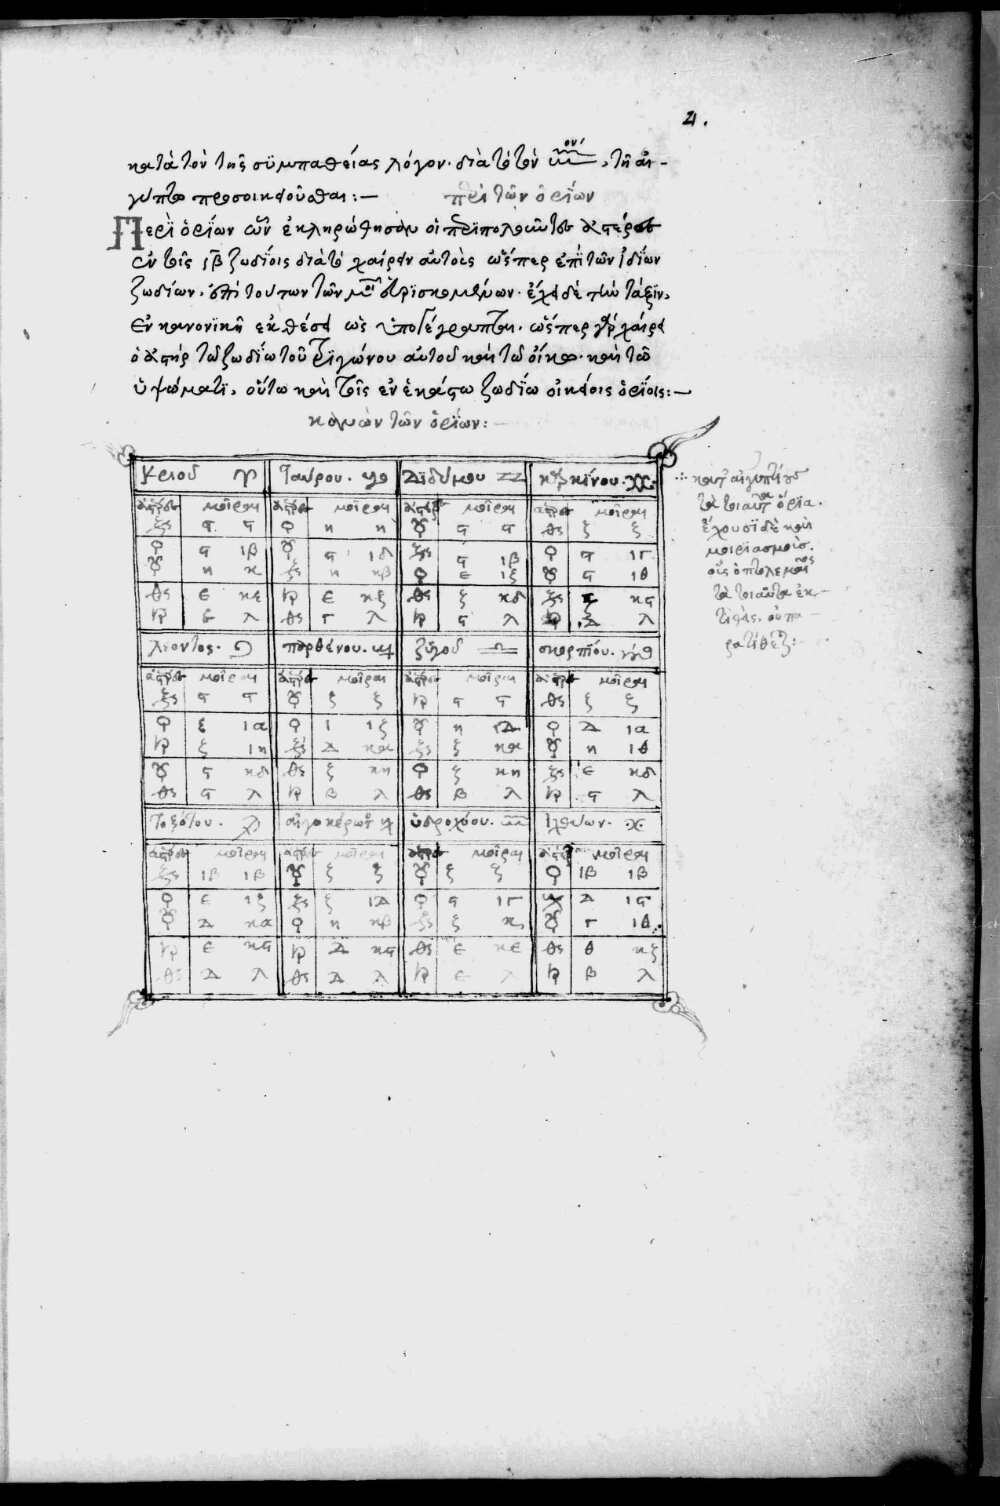 21.
κατὰ τὸν τῆς συμπαθείας λόγον· διὰ τὸ τὸν ♒ον, τῇ αἰ-
γύπτω προσοικειοῦσθαι:—
περὶ τῶν ὁρίων
Περὶ ὁρίων ὧν ἐκληρώθησαν οἱ περιπολοῦντες ἀστέρες
ἐν τοῖς ιβ ζωδίοις διὰ τὸ χαίρειν αὐτοὺς ὥσπερ ἐπὶ τῶν ἰδίων
ζωδίων, ἐπὶ τούτων τῶν μοι εὑρισκομένων· ἔχει δὲ τὴν τάξιν,
ἐν κανονικῇ ἐκθέσει ὡς ὑπογέγραπται· ὥσπερ γὰρ χαίρει
ὁ ἀστὴρ τῶ ζωδίω τοῦ τριγώνου αὐτοῦ καὶ τῶ οἴκω· καὶ τῶ
ὑψώματι, οὕτω καὶ τοῖς ἐν ἑκάστω ζωδίω οἰκείοις ὁρίοις:—
κανὼν τῶν ὁρίων:—
Κριοῦ ♈ Ταύρου ♉ Διδύμου ♊ Καρκίνου ♋
ἀστέρες μοῖραι ἀστέρες μοῖραι ἀστέρες μοῖραι ἀστέρες μοῖραι
ζς ϛ ϛ ♀ η η ☿ ϛ ϛ θς ζ ζ
♀ ϛ ιβ ☿ ϛ ιδ ζς ϛ ιβ ♀ ϛ ιγ
☿ η κ ζς η κβ ♀ ε ιζ ☿ ϛ ιθ
θς ε κε ♄ ε κζ θς ζ κδ ζς ζ κϛ
♄ ε λ θς γ λ ♄ ϛ λ ♄ Δ λ
λέοντος ♌ παρθένου ♍ ζυγοῦ ♎ σκορπίου ♏
ἀστέρες μοῖραι ἀστέρες μοῖραι ἀστέρες μοῖραι ἀστέρες μοῖραι
ζς ϛ ϛ ☿ ζ ζ ♄ ϛ ϛ θς ζ ζ
♀ ε ια ♀ ι ιζ ☿ η ιΔ ♀ Δ ια
♄ ζ ιη ζς Δ κα ζς ζ κα ☿ η ιθ
☿ ϛ κδ θς ζ κη ♀ ζ κη ζς ε κδ
θς ϛ λ ♄ β λ θς β λ ♄ ϛ λ
Τοξότου ♐ αἰγοκέρωτ ♑ ὑδροχόου ♒ Ἰχθύων ♓
ἀστέρες μοῖραι ἀστέρες μοῖραι ἀστέρες μοῖραι ἀστέρες μοῖραι
ζς ιβ ιβ ☿ ζ ζ ☿ ζ ζ ♀ ιβ ιβ
♀ ε ιζ ζς ζ ιΔ ♀ ϛ ιγ Δ ιϛ
☿ Δ κα ♀ η κβ ζς ζ κ ☿ γ ιθ
♄ ε κϛ ♄ Δ κϛ θς ε κε θς θ κζ
θς Δ λ θς Δ λ ♄ ε λ ♄ β λ
κατ αἰγυπτίους
τὰ τοιαῦτα ὅρια.
ἔχουσι δὲ καὶ
μοιριασμοὺς.
οὓς ὁ πτολεμαῖος
τὰ τοιαῦτα ἐκ-
τιθεὶς, οὐ πα-
ρατίθεται:-